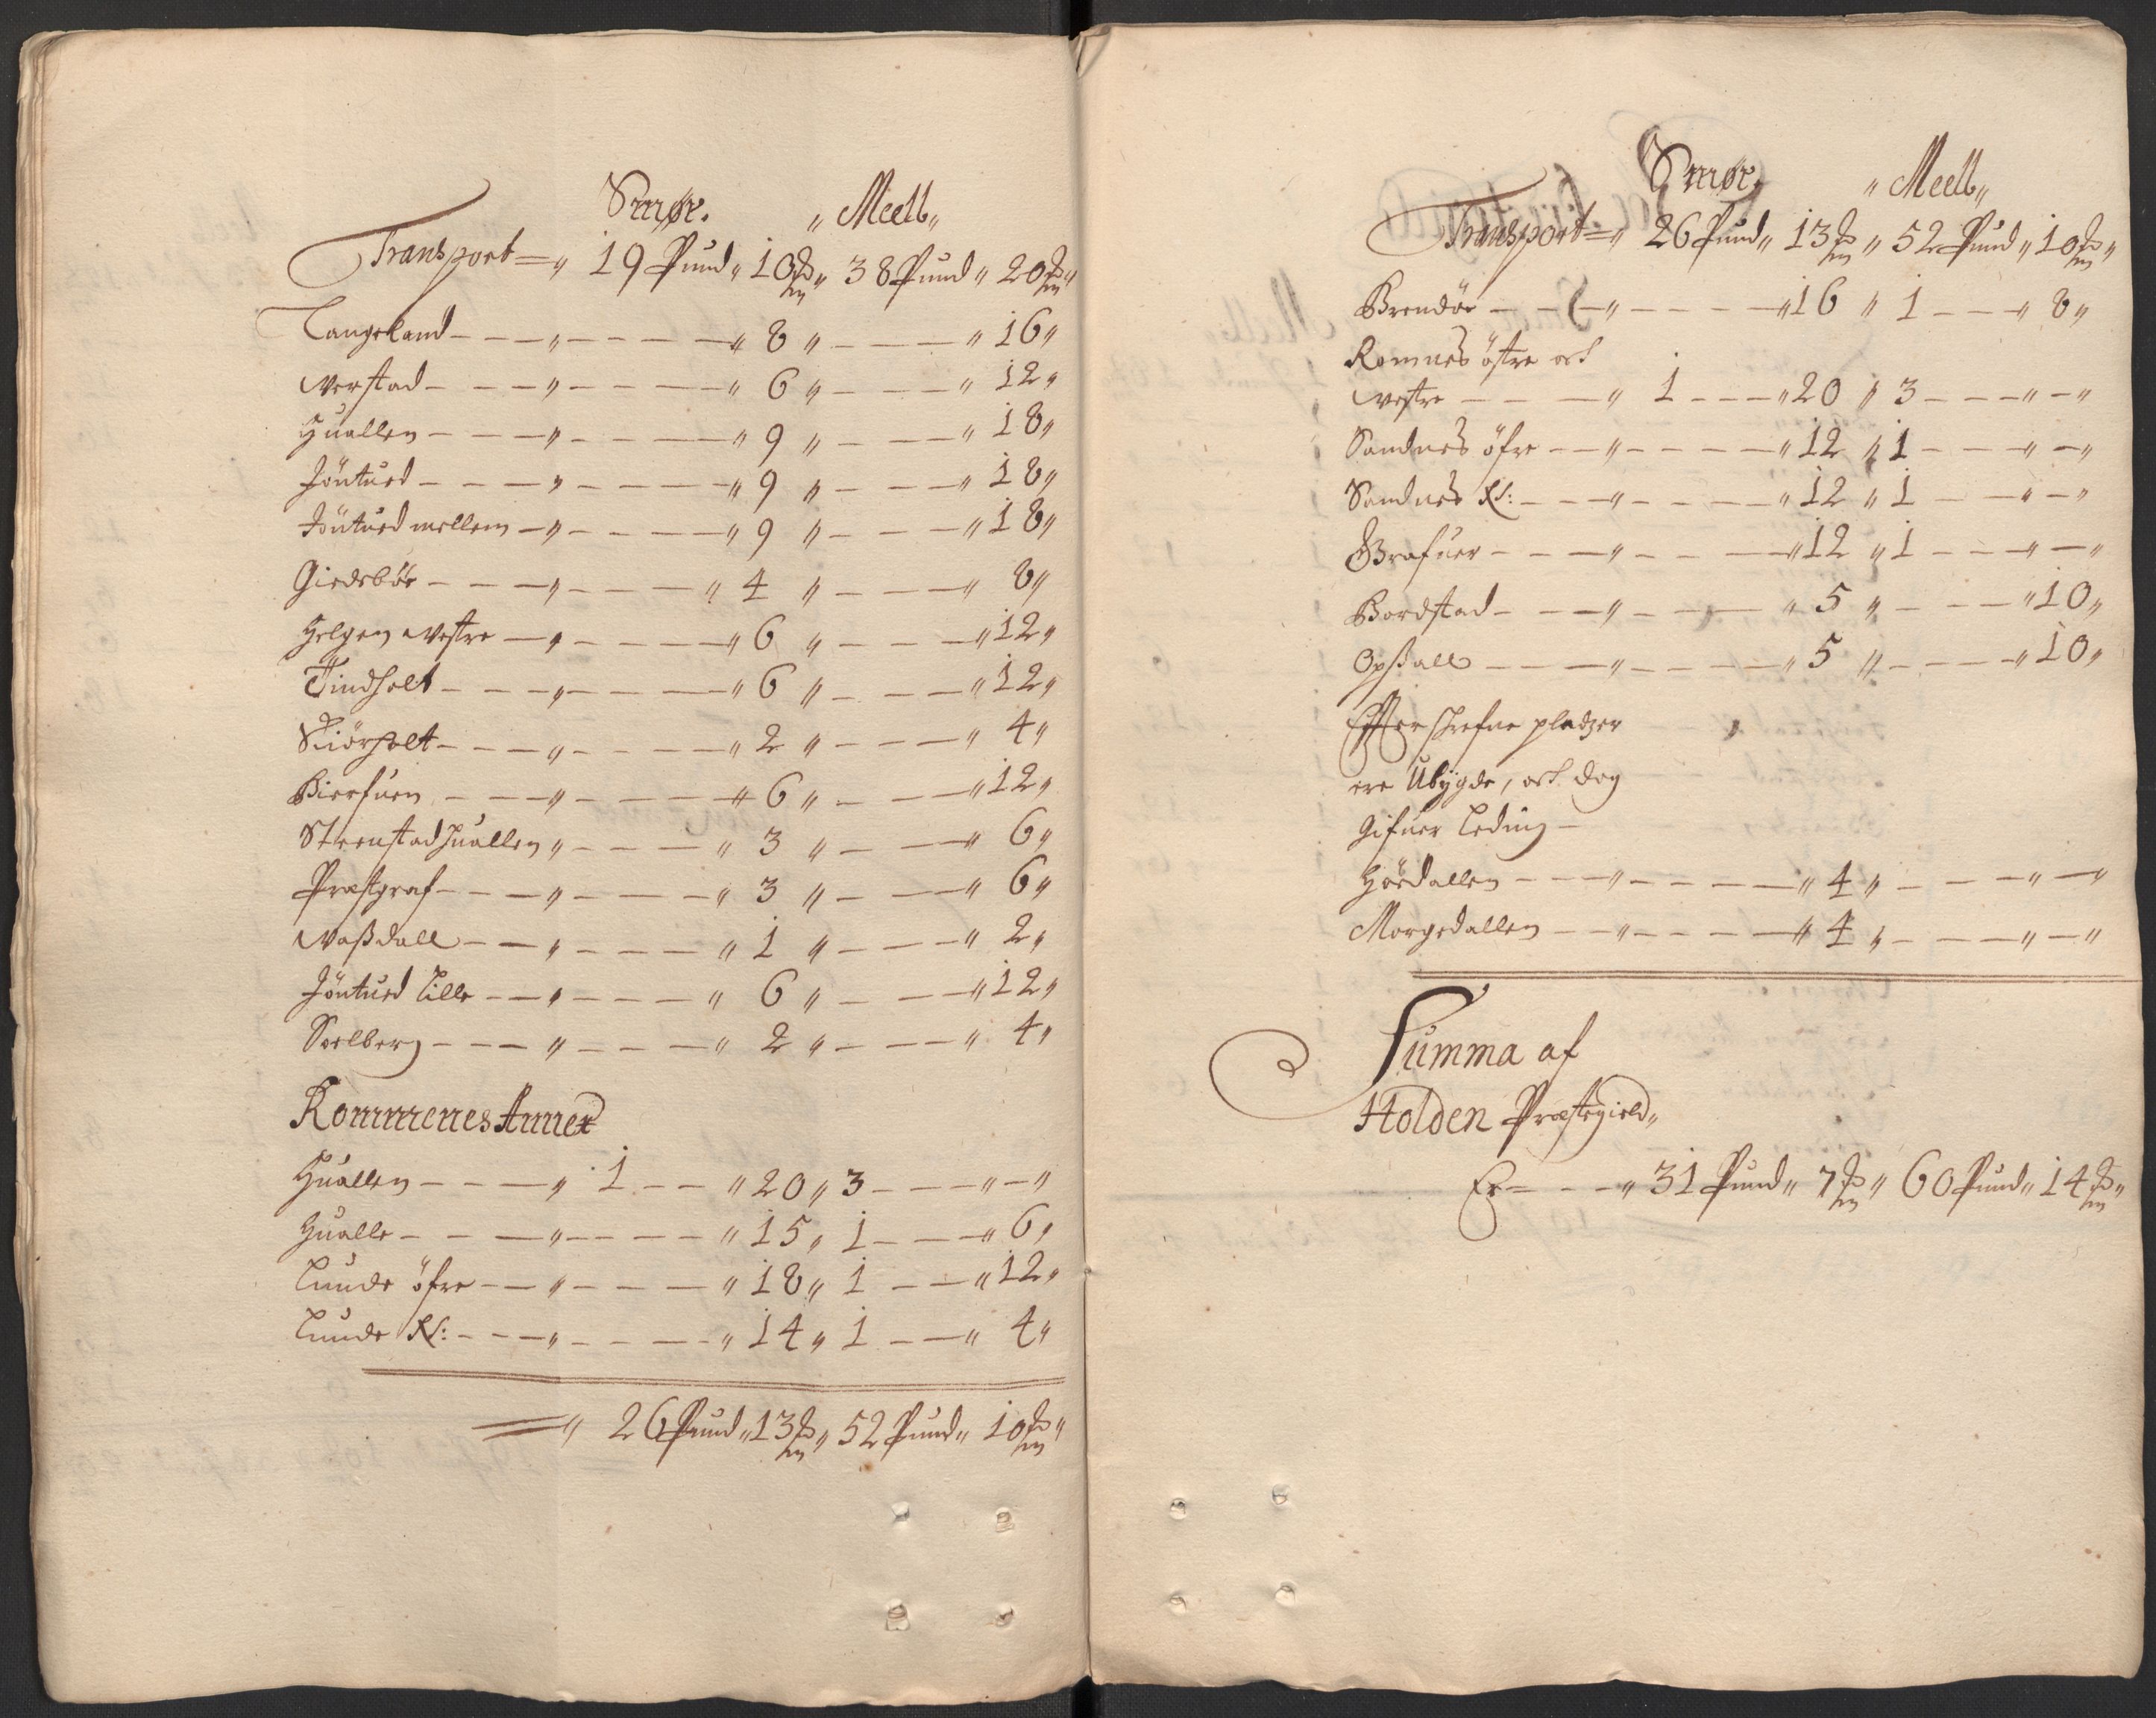 Smør. " Meell"
Transport = " 19 Pund " 10 ℔ " 38 Pund " 20 ℔ "
Langeland - - - " - - - - " 8 " - - - " 16 "
Werstad - - - " - - - - " 6 " - - - " 12 "
Huallen - - - " - - - - " 9 " - - - " 18 "
Jöntued - - - " - - - - " 9 " - - - " 18 "
Jöntued mellem - " - - - - " 9 " - - - " 18 "
Giedebøe - - - " - - - - " 4 " - - - " 8 "
Helgen Westre - " - - - - " 6 " - - - " 12 "
Tindholt - - - " - - - - " 6 " - - - " 12 "
Skiörholt - - - " - - - - " 2 " - - - " 4 "
Bierfuen - - - " - - - - " 6 " - - - " 12 "
Steenstadhuallen " - - - - " 3 " - - - " 6 "
Præstgraf - - - " - - - - " 3 " - - - " 6 "
Waßdall - - " - - - - " 1 " - - - " 2 "
Jöntued Lille - - " - - - " 6 " - - - " 12 "
Soelberg - - - " - - - " 2 " - - - " 4 "
Rommenes Annex
Huallen - - - " 1 - - " 20 " 3 - - - " - "
Hualle - - - " - - - - " 15 " 1 - - - " 6 "
Lunde öfre - - " - - - - " 18 " 1 - - " 12 "
Lunde Nl: - - - " - - - - " 14 " 1 - - " 4 "
= " 26 Pund " 13 ℔ " 52 Pund " 10 ℔ "
Smør. " Meell"
Transport = " 26 Pund " 13 ℔ " 52 Pund " 10 ℔ "
Brendöe - - - " - - - - " 16 " 1 - - - " 8 "
Romnes östre och
Westre - - - " 1 - - - " 20 " 3 - - - " - "
Sandnes öfre - - " - - - - " 12 " 1 - - - " - "
Sandnes Nl: - - - " - - - - " 12 " 1 - - - " - "
Grafuer - - - " - - - - " 12 " 1 - - - " - "
Bordstad - - - " - - - - " 5 " - - - " 10 "
Opßall - - - " - - - - " 5 " - - - " 10 "
Effterschrefne pladzer
ere Ubygde, och dog
Gifuer Leding -
Hördallen - - - " - - - - " 4 " - - - " - "
Morgedallen - - " - - - - " 4 " - - - " - "
Summa af
Holden Præstegield "
Er - - - " 31 Pund " 7 ℔ " 60 Pund " 14 ℔ "